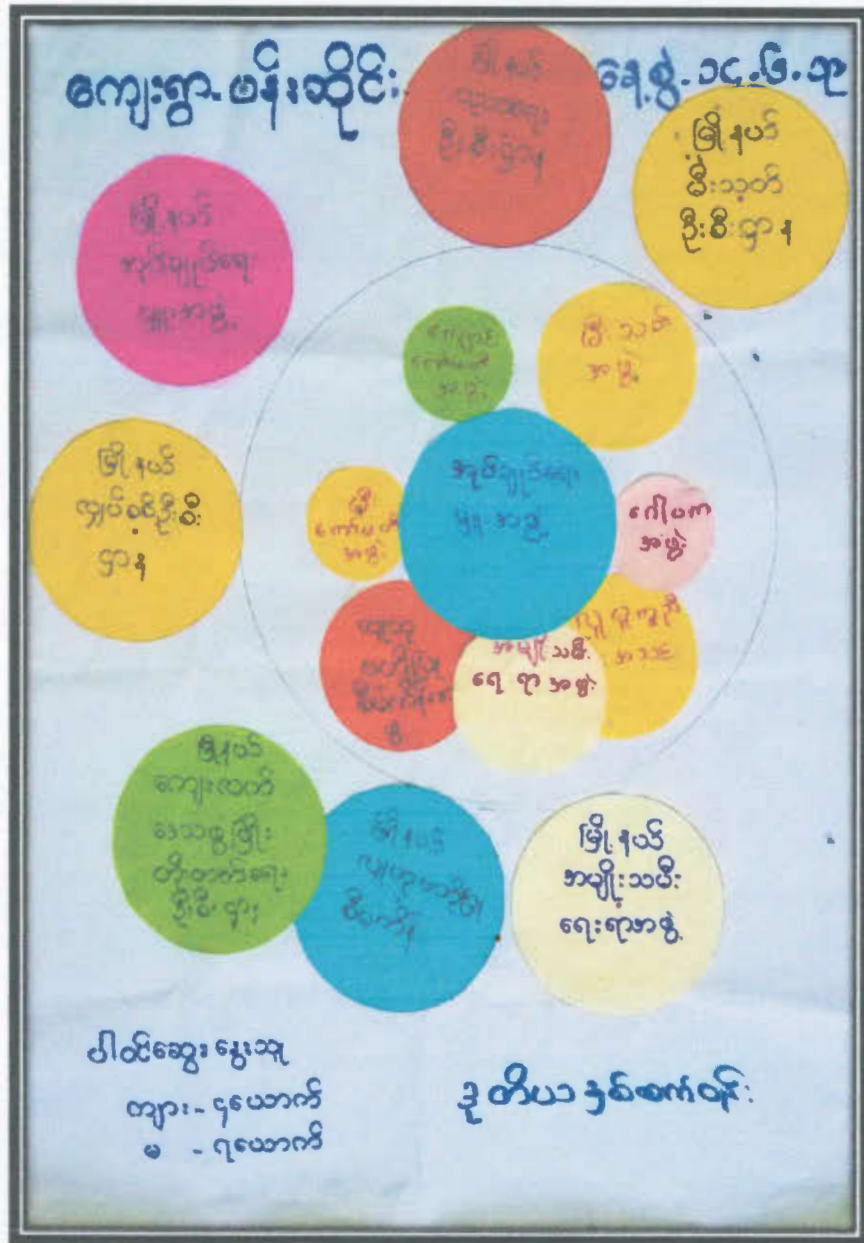 ကျေးရွာ-ဗန်းဆိုင်း
နေ့စွဲ-၁၄.၆.၁၇
မြို့နယ်
ဦးစီးဌာန
မြို့နယ်
မီးသတ်
ဦးစီးဌာန
မြို့နယ်
အုပ်ချုပ်ရေး
မှူးအဖွဲ့
အဖွဲ့
မီးသတ်
အဖွဲ့
မြို့နယ်
လျှပ်စစ်ဦးစီး
ဌာန
ကော်မတီ
အဖွဲ့
အုပ်ချုပ်ရေး
မှူးအဖွဲ့
ဂေါပက
အဖွဲ့
အမျိုးသမီး
ရေးရာအဖွဲ့
အသင်း
မြို့နယ်
ကျေးလက်
ဒေသဖွံ့ဖြိုး
တိုးတက်ရေး
ဦးစီးဌာန
မြို့နယ်
စီမံကိန်း
မြို့နယ်
အမျိုးသမီး
ရေးရာအဖွဲ့
ပါဝင်ဆွေးနွေးသူ
ကျား - ၄ယောက်
မ - ၇ယောက်
ဒုတိယနှစ်စက်ဝန်း